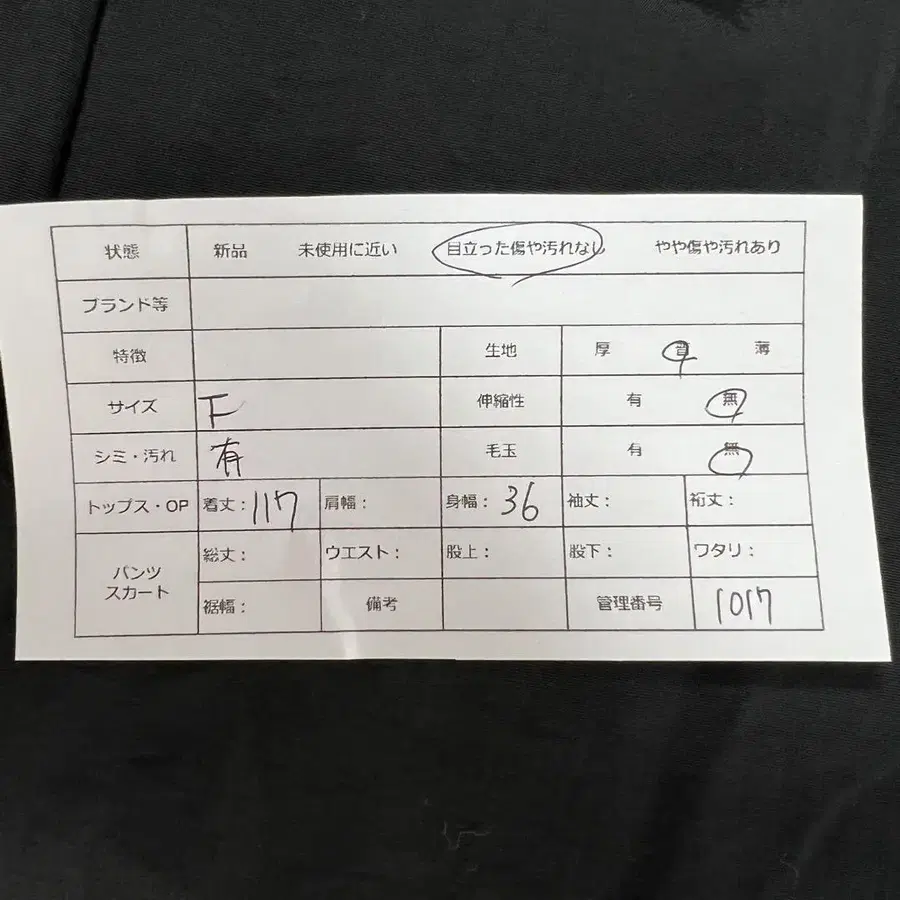 状態 新品 未使用に近い 目立った傷や汚れなし やや傷や汚れあり
ブランド等
特徴 生地 厚 普 薄
サイズ F 伸縮性 有 無
シミ・汚れ 有 毛玉 有 無
トップス・OP 着丈：117 肩幅： 身幅：36 袖丈： 裄丈：
パンツ スカート 総丈： ウエスト： 股上： 股下： ワタリ：
裾幅： 備考 管理番号 1017